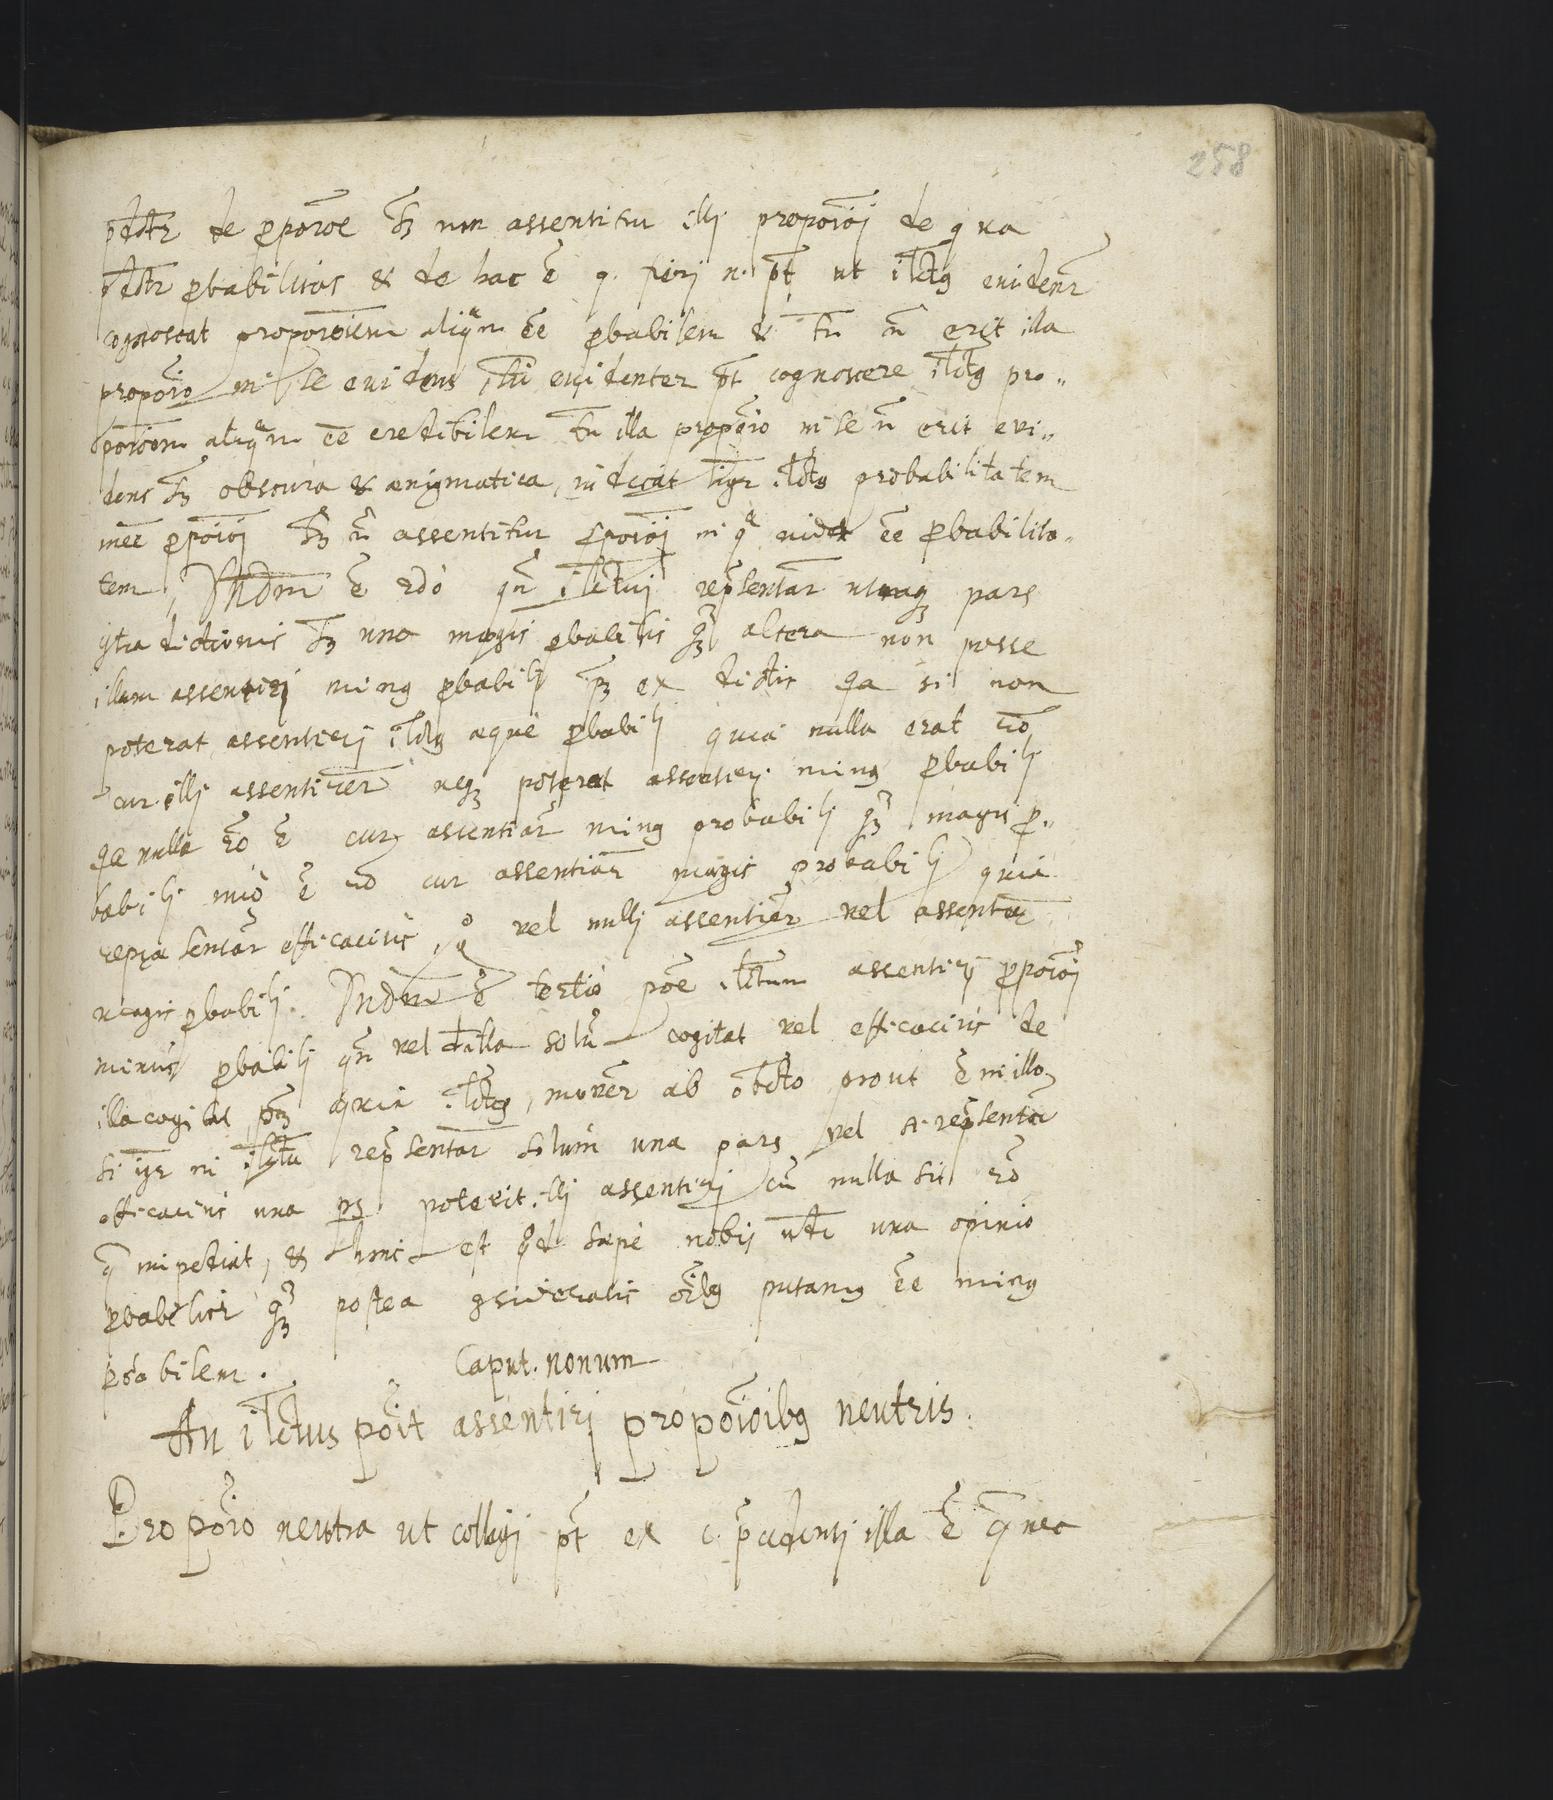 258
pdctr de pporoe sz non assentitur illi propoioj de qua
pdctr pbabilitas & de hac ē q. fierj n. pt ut illcts evidentr
cognoscat proporoiem aliqm ēe pbabilem & tn n erit illa
propoio in se evidens, sicuti evidenter pt cognoscere illcts pro„
poroem aliqm ēe credibilem tn illa propoio in se n erit evi„
dens sz obscura & ænigmatica, iudicat igr illcts probabilitatem
ppoioj sz n assentitur ppoioj in q videt ēe pbabilita„
tem, Indm ē 2do qn illctuj repsentatr utraq pars
gtradictionis sz una magis pbabilis qz altera non posse
illum assentirj minus pbabilj pz ex dictis qa si non
poterat assentirj illcts æque pbabilj quia nulla erat rō
cur illj assentiretr neqz poterat assentirj minus pbabilj
qa nulla rō ē cur assentiatr minus probabilj qz magis p„
babilj imo ē rō cur assentiatr magis probabilj quia
repræsentatr efficacius, vel nullj assentietr vel assentietr
magis pbabilj. Indm ē tertio poē illctum assentirj ppoioj
minus pbabilj qn vel de illa solū cogitat vel efficacius de
illa cogitat pz quia illcts, movetr ab obcto prout ē in illo,
si igr in illctu repsentatr solum una pars vel repsentatr
efficacius una ps poterit illj assentirj cū nulla sit rō
q impediat, & hinc est qd sæpe nobis una opinio
pbabilior qz postea gsideratis oibs putamus ēe minus
pbabilem.
Caput. nonum
An illctus poit assentirj propoioibs neutris.
Propoio neutra ut colligj pt ex c. pcedentj illa ē q nec